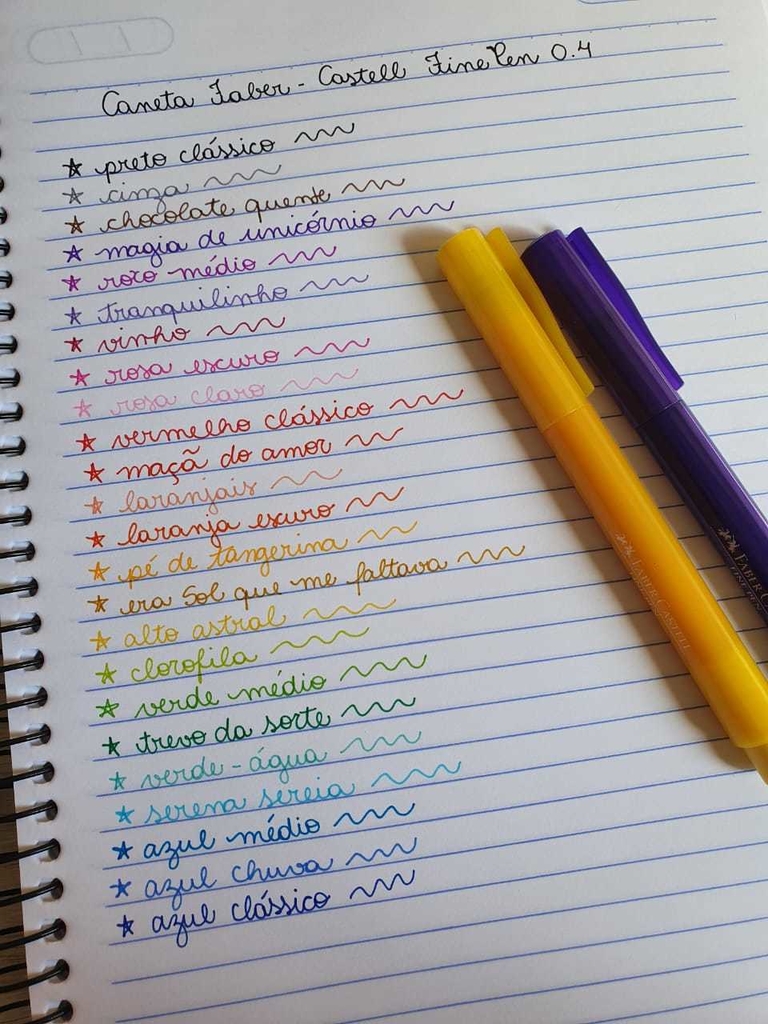 Caneta Faber-Castell FinePen 0.4
★ preto clássico
★ cinza
★ chocolate quente
★ magia de unicórnio
★ roxo médio
★ tranquilinho
★ vinho
★ rosa escuro
★ rosa claro
★ vermelho clássico
★ maçã do amor
★ laranjais
★ laranja escuro
★ pé de tangerina
★ era Sol que me faltava
★ alto astral
★ clorofila
★ verde médio
★ trevo da sorte
★ verde-água
★ serena sereia
★ azul médio
★ azul chuva
★ azul clássico
FABER-CASTELL
FABER-C